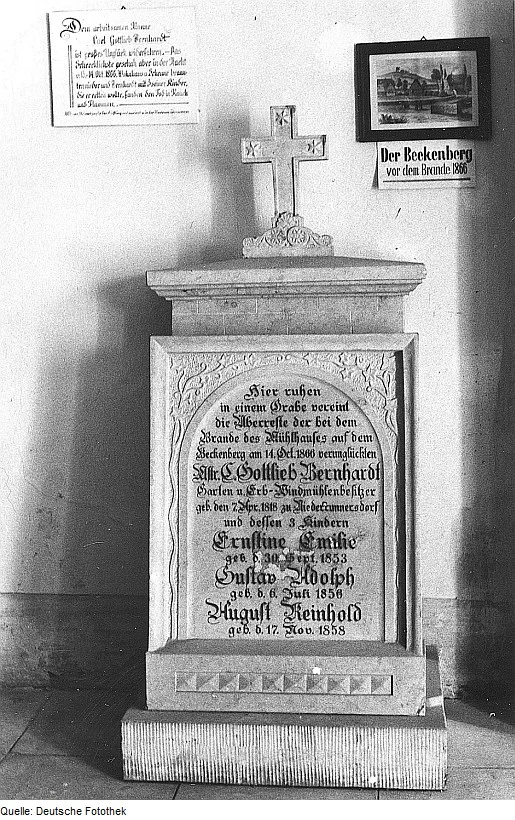 Dem arbeitsamen Manne
Carl Gottlieb Bernhardt
ist großes Unglück widerfahren. Das
Schrecklichste geschah aber in der Nacht
14. Okt. 1866. Wohnhaus u. Scheune brann-
und Bernhardt mit Kinder,
die er retten wollte, fanden den Tod in Rauch
und Flammen.
Der Beckenberg
vor dem Brande 1866
Hier ruhen
in einem Grabe vereint
die Überreste der bei dem
Brande des Mühlhauses auf dem
Beckenberg am 14. Oct. 1866 verunglückten
Mstr. C. Gottlieb Bernhardt
Garten u. Erb-Windmühlenbesitzer
geb. den 7. Apr. 1818 zu Niedercunnersdorf
und dessen 3 Kindern
Ernstine Emilie
geb. d. 30. Sept. 1853
Gustav Adolph
geb. d. 6. Juli 1856
August Reinhold
geb. d. 17. Nov. 1858
Quelle: Deutsche Fotothek